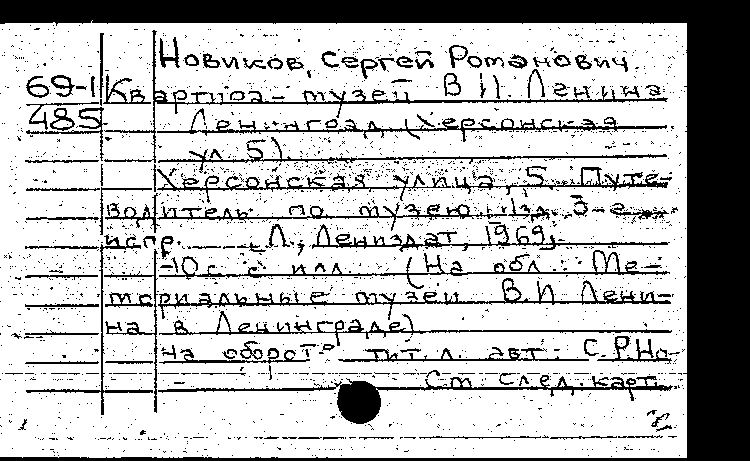 Новиков, Сергей Романович.
69-1 Квартира-музей В.И. Ленина
485 Ленинград (Херсонская
ул 5).
Херсонская улица, 5. Путе-
водитель по музею. Изд. 3-е
испр. Л., Лениздат, 1969.
с илл. (На обл.: Ме-
мориальные музеи В.И. Лени-
на в Ленинграде)
На обороте тит. л. авт.: С.Р. Но-
См. след. карт.